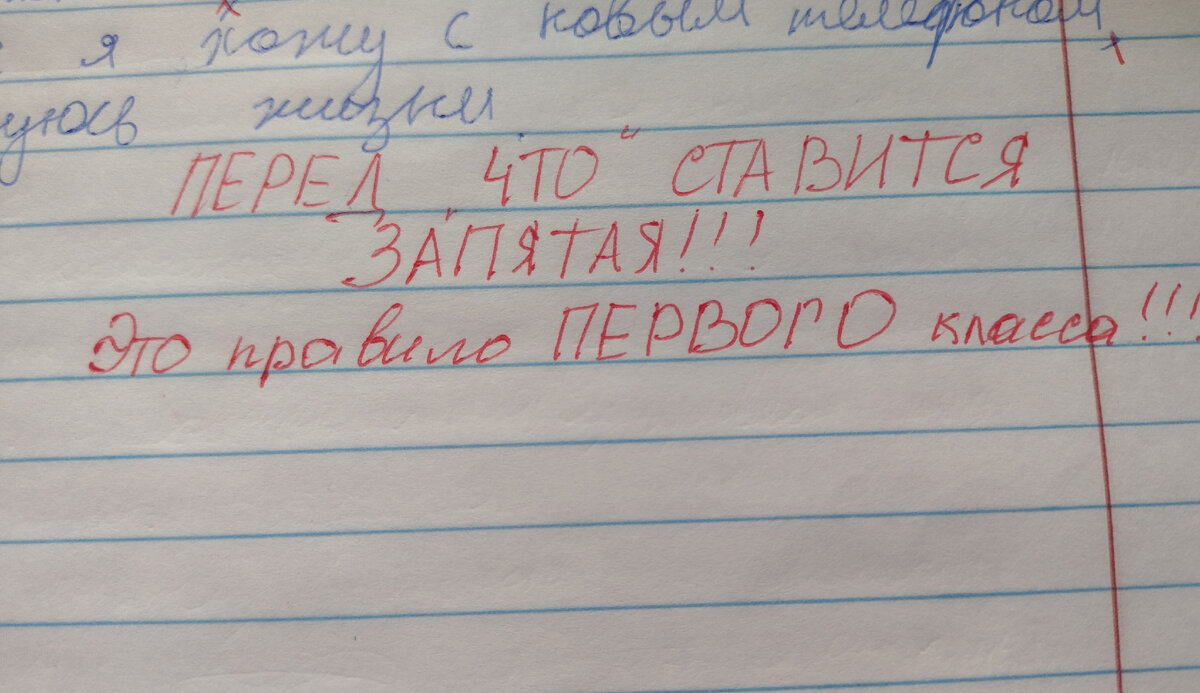 я хожу с новым телефоном
жизни
ПЕРЕД „ЧТО“ СТАВИТСЯ
ЗАПЯТАЯ!!!
Это правило ПЕРВОГО класса!!!